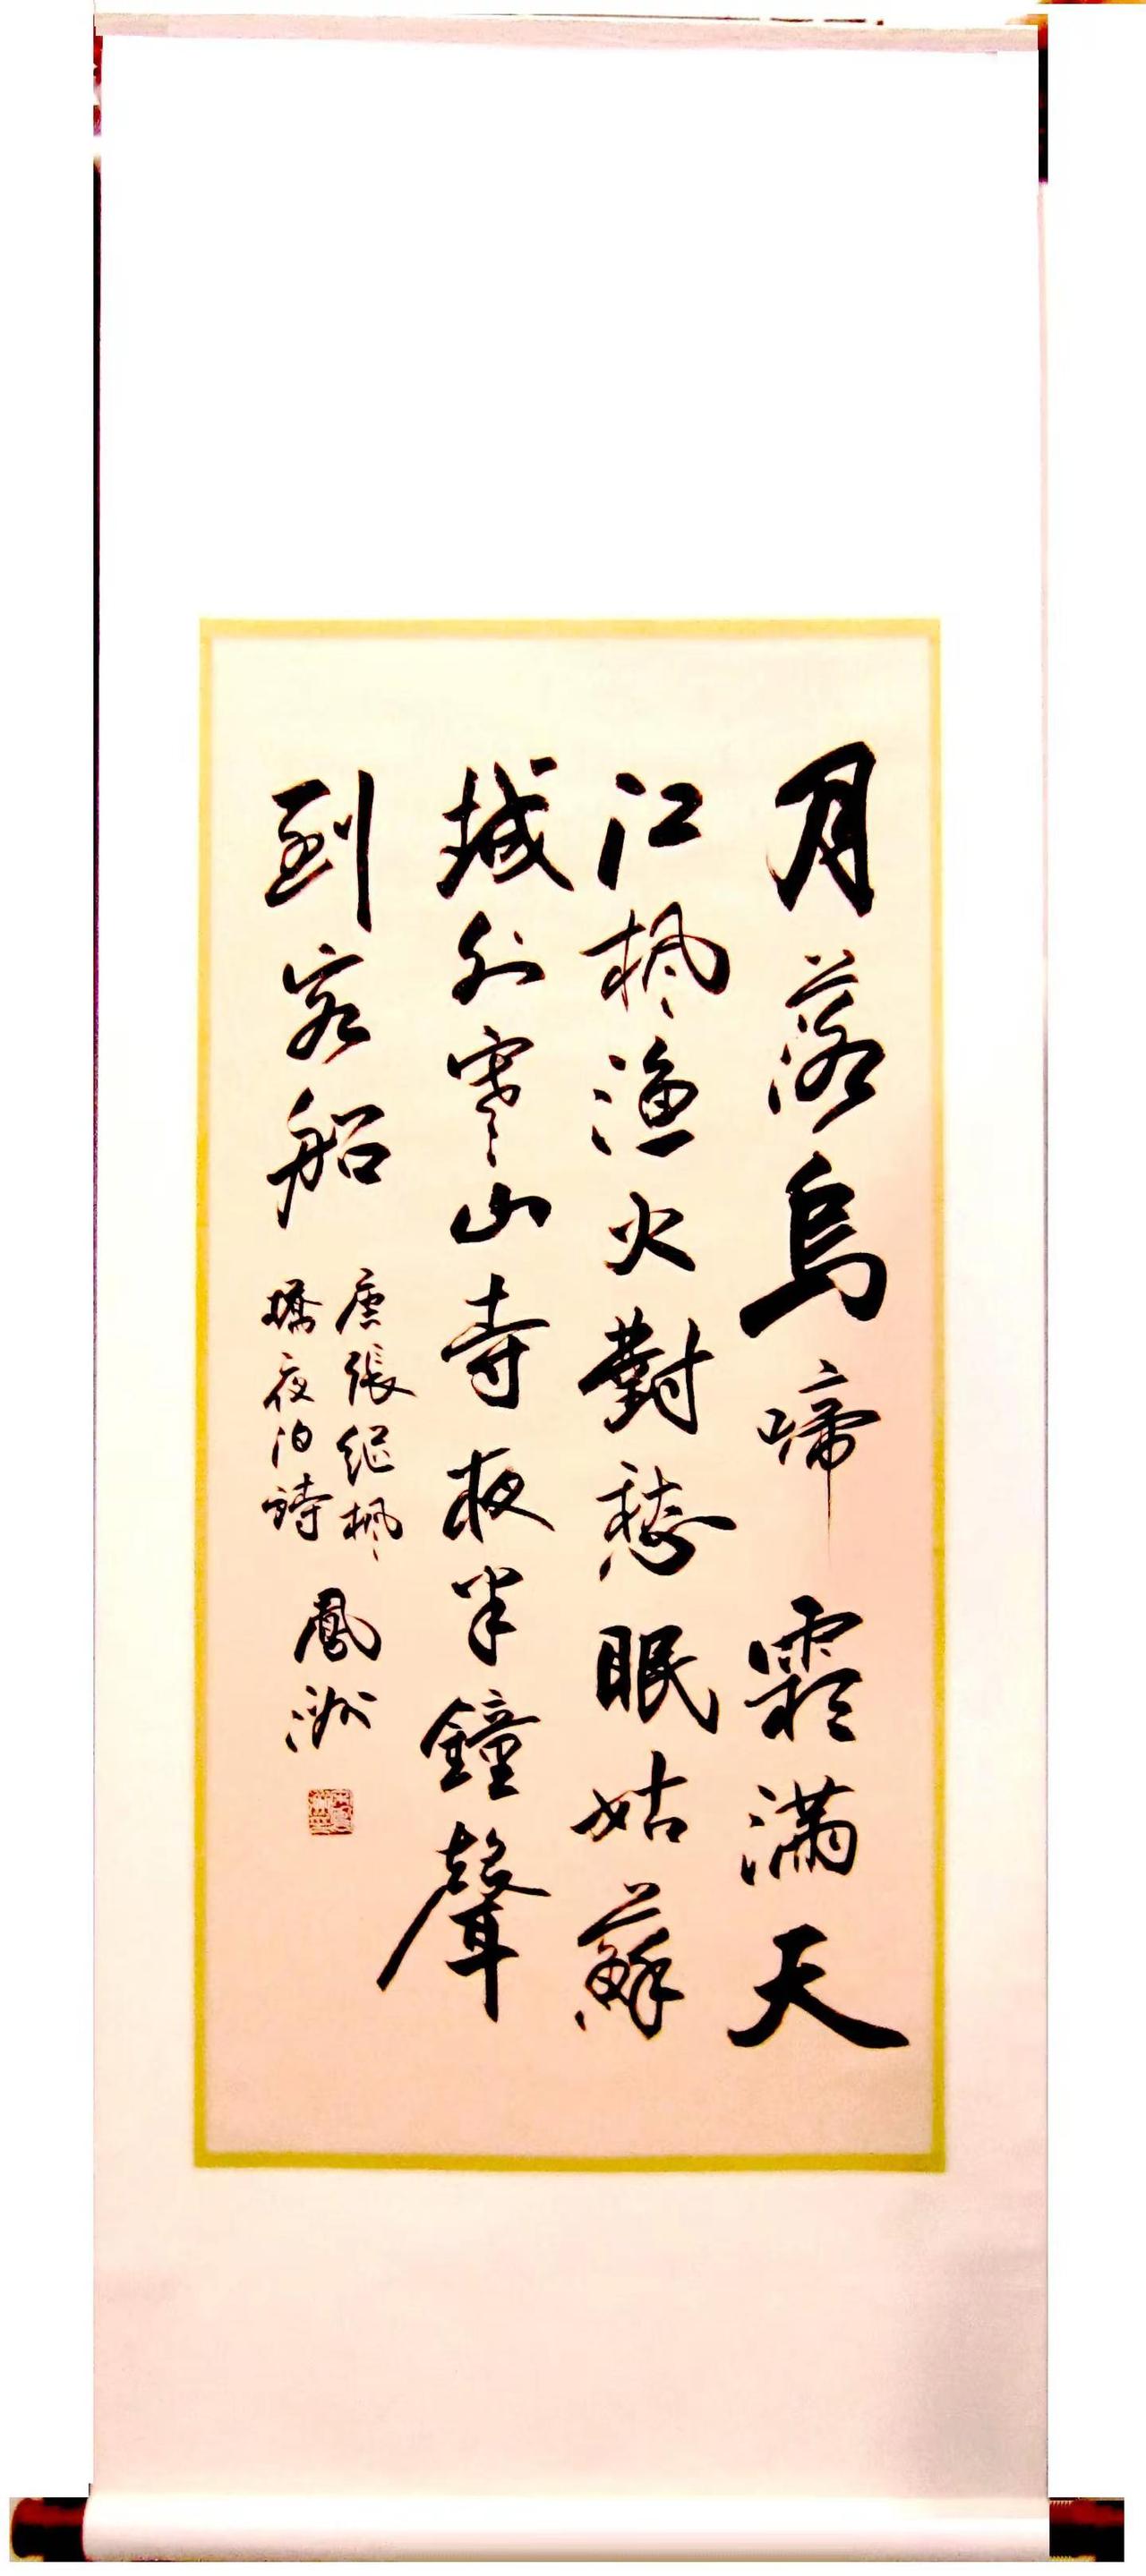 月落烏啼霜満天
江楓漁火對愁眠姑蘇
城外寒山寺夜半鐘聲
到客船
唐張繼楓
橋夜泊詩
鳳洲